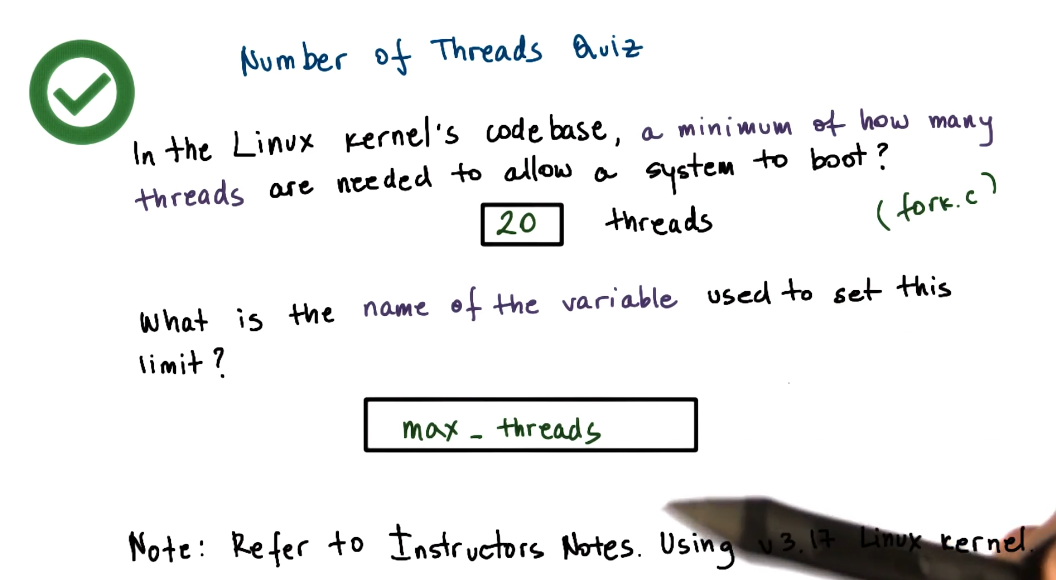 Number of Threads Quiz
In the Linux kernel's codebase, a minimum of how many
threads are needed to allow a system to boot?
20 threads (fork.c)
What is the name of the variable used to set this
limit?
max_threads
Note: Refer to Instructors Notes. Using v3.17 Linux kernel.